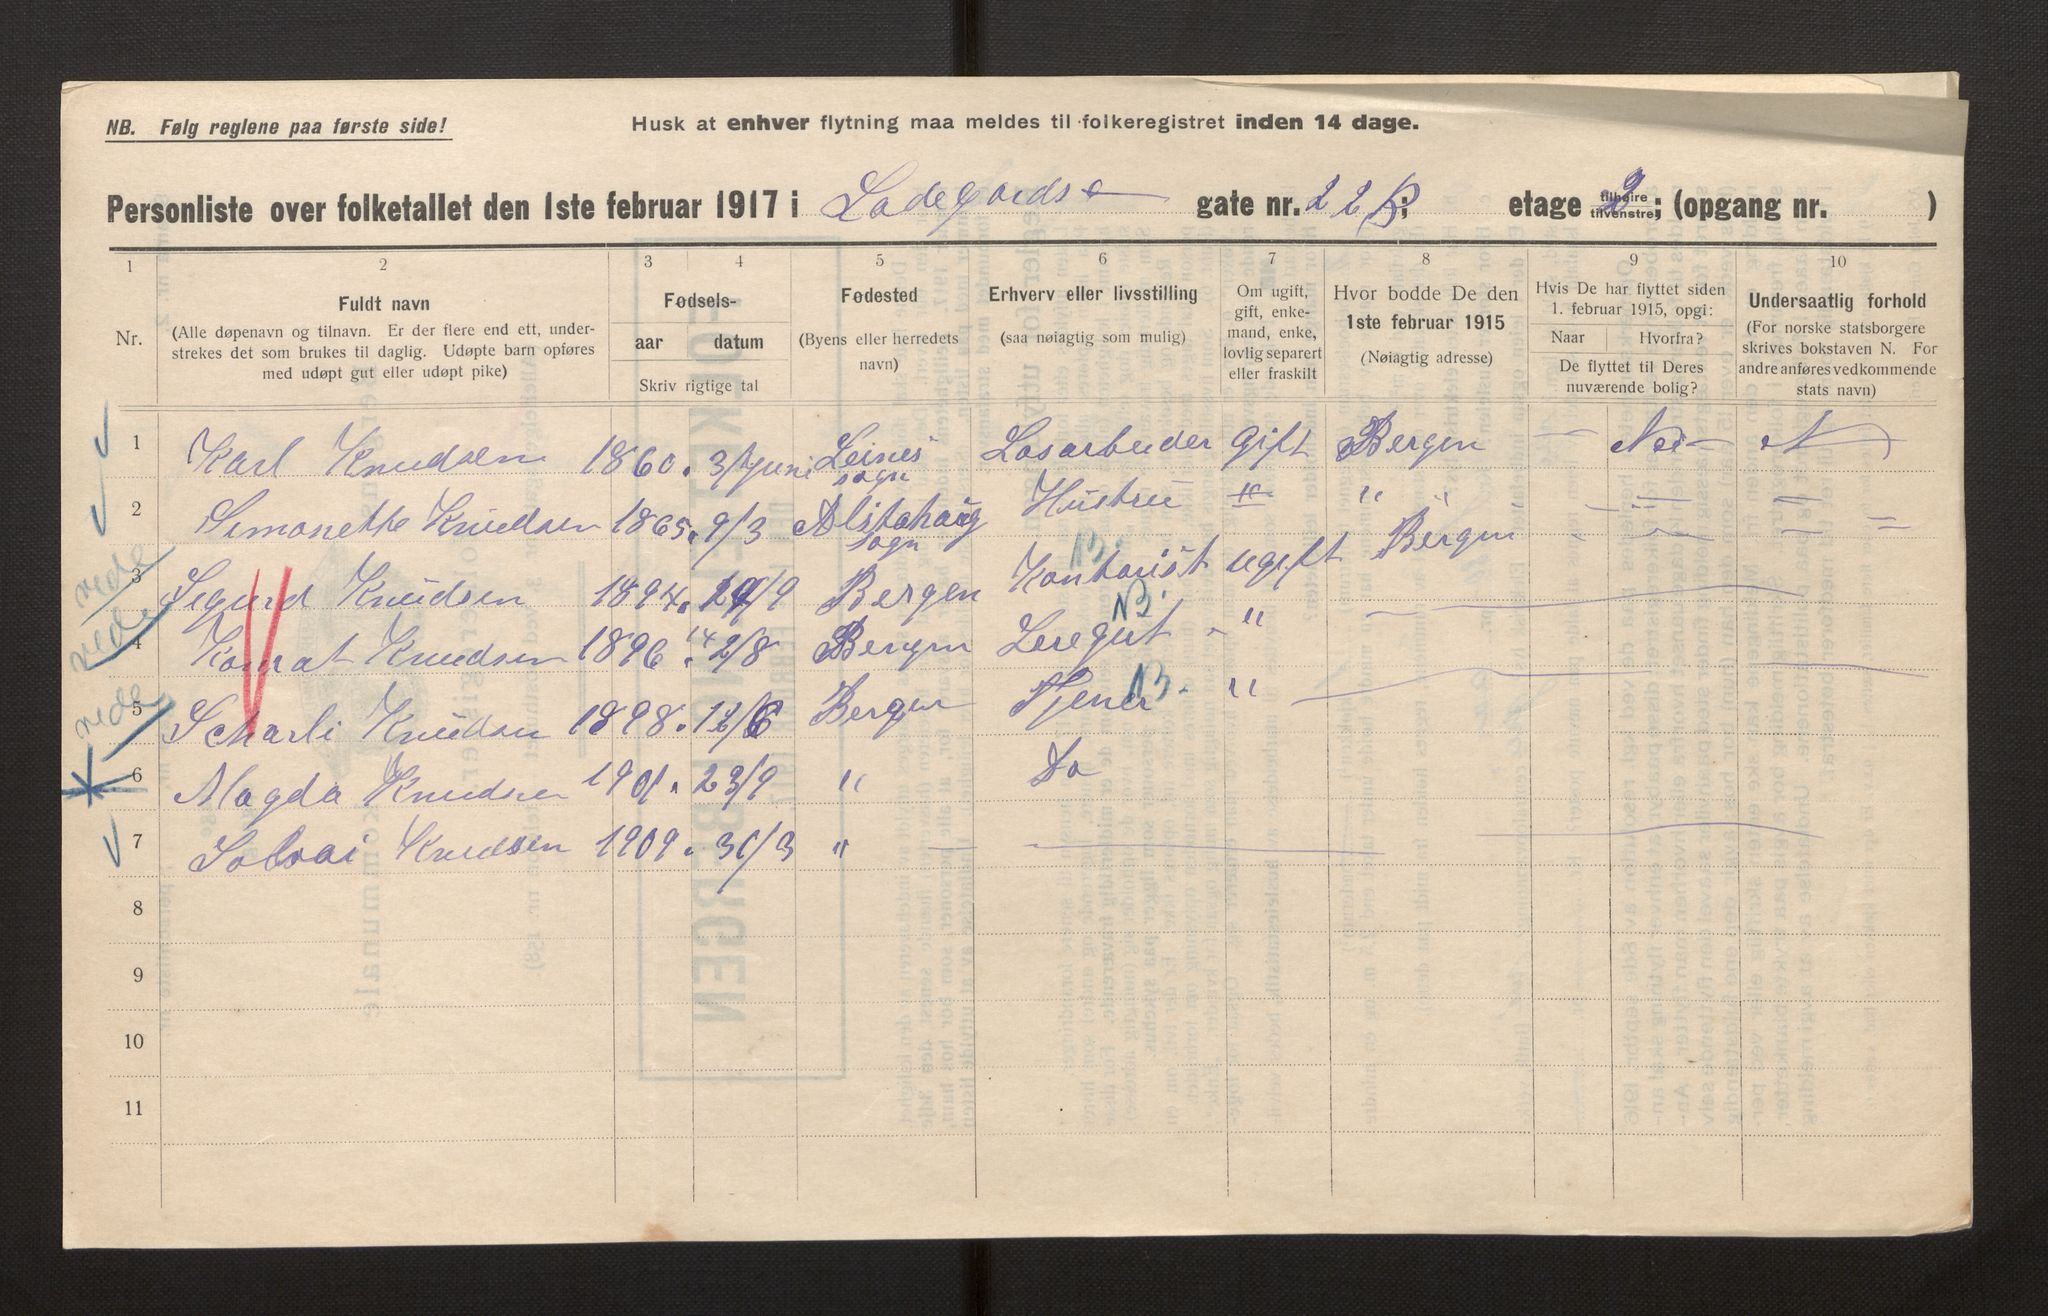 NB. Følg reglene paa første side!
Husk at enhver flytning maa meldes til folkeregistret inden 14 dage.
Personliste over folketallet den 1ste februar 1917 i Ladegords gate nr. 22 B; etage 2 tilhøire tilvenstre; (opgang nr. )
1 2 3 4 5 6 7 8 9 10
Nr.
Fuldt navn
(Alle døpenavn og tilnavn. Er der flere end ett, under-
strekes det som brukes til daglig. Udøpte barn opføres
med udøpt gut eller udøpt pike)
Fødsels-
aar datum
Skriv rigtige tal
Fødested
(Byens eller herredets
navn)
Erhverv eller livsstilling
(saa nøiagtig som mulig)
Om ugift,
gift, enke-
mand, enke,
lovlig separert
eller fraskilt
Hvor bodde De den
1ste februar 1915
(Nøiagtig adresse)
Hvis De har flyttet siden
1. februar 1915, opgi:
Naar Hvorfra?
De flyttet til Deres
nuværende bolig?
Undersaatlig forhold
(For norske statsborgere
skrives bokstaven N. For
andre anføres vedkommende
stats navn)
1 Karl Knudsen 1860. 3/juni Leines sogn Løsarbeider gift Bergen — Nei — N
2 Simonette Knudsen 1865. 9/3 Alstahaug sogn Hustru " " - " - "
rede 3 Sigurd Knudsen 1894. 29/9 Bergen Kontorist ugift Bergen
B.
rede 4 Konrat Knudsen 1896. 14 2/8 Bergen Leregut - "
NB.
rede 5 Scharli Knudsen 1898. 12/6 Bergen Tjener "
B.
6 Magda Knudsen 1901. 23/9 " Do
7 Solvai Knudsen 1909. 31/3 " —
8
9
10
11